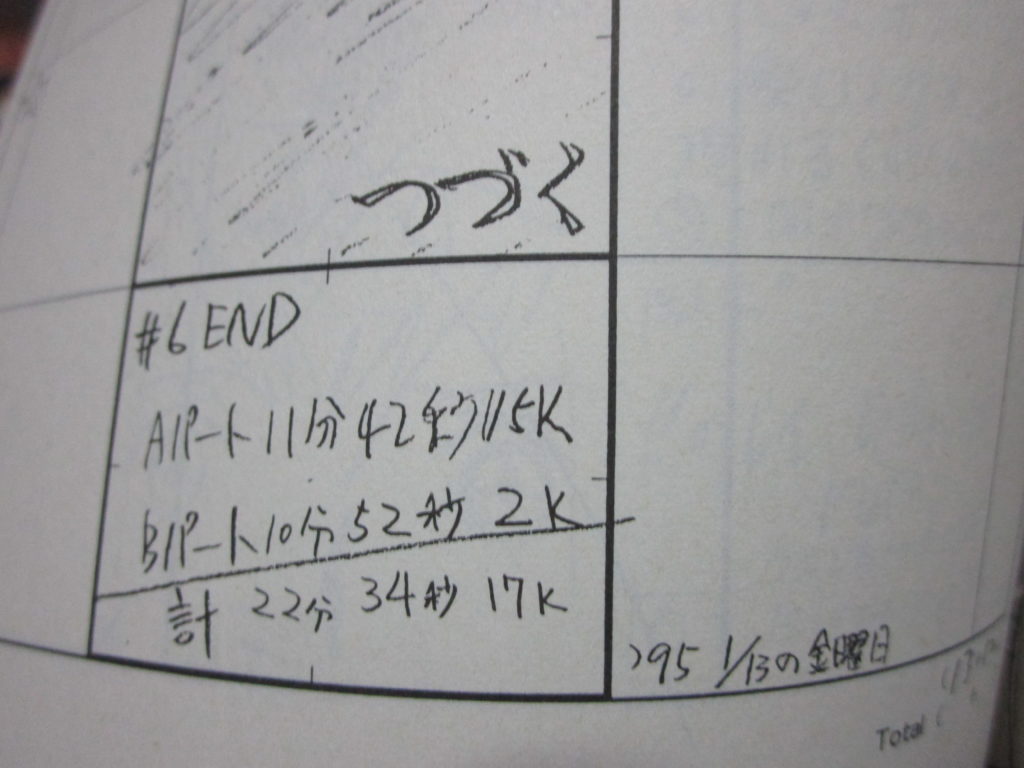 つづく
#6 END
Aパート 11分 42秒 15K
Bパート 10分 52秒 2K
計 22分 34秒 17K
'95 1/13の金曜日
Total (